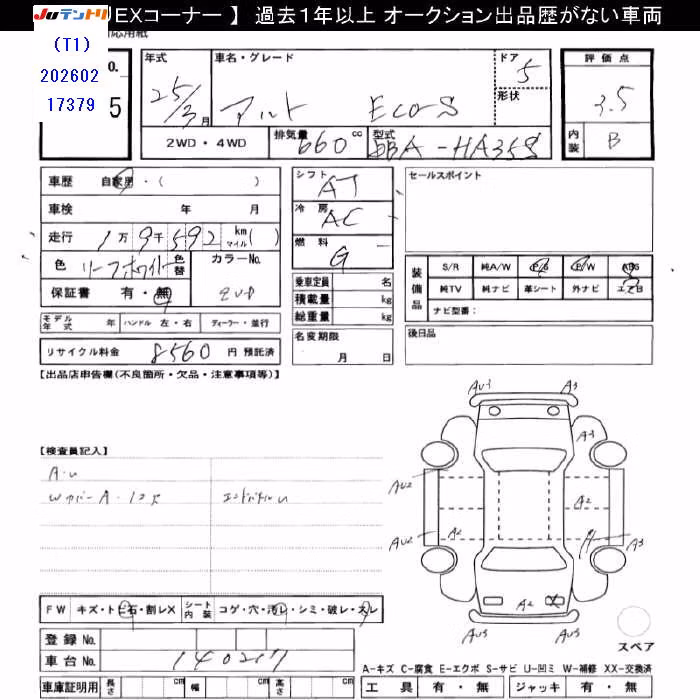 JUテントリ
EXコーナー 】 過去1年以上 オークション出品歴がない車両
(T1)
202602
17379
o.
5
年式
25/3月
車名・グレード
アルト Eco-S
ドア
5
形状
2WD・4WD
排気量
660 cc
型式
DBA-HA35S
評価点
3.5
内装
B
車歴 自家用・( )
車検 年 月
走行 1万9千592 km マイル( )
色 リーフホワイト 色替 カラーNo.
保証書 有・無
ZUP
モデル年式 年 ハンドル 左・右 ディーラー・並行
リサイクル料金 8560 円 預託済
シフト
AT
冷房
AC
燃料
G
乗車定員 名
積載量 kg
総重量 kg
名変期限
月 日
セールスポイント
装備品
S/R 純A/W P/S P/W ABS
純TV 純ナビ 革シート 外ナビ エアB
ナビ型番:
後日品
【出品店申告欄(不良箇所・欠品・注意事項等)】
【検査員記入】
A・U
Wカバー A・1コ欠
エンドパネル U
AU1
A3
A1
AU2
A2
AU2
A2
A3
A2
AU3
AU3
スペア
FW キズ・トビ石・割レX シート内装 コゲ・穴・汚レ・シミ・破レ・スレ
登録 No.
車台 No. 140217
車庫証明用 長さ cm 幅 cm 高さ cm
A-キズ C-腐食 E-エクボ S-サビ U-凹ミ W-補修 XX-交換済
工具 有・無 ジャッキ 有・無